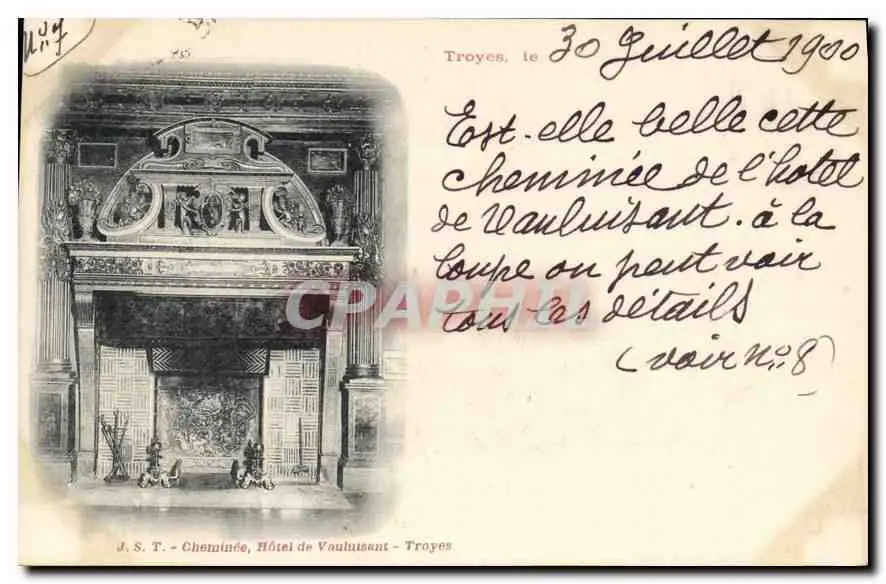 N° 7
Troyes, le 30 Juillet 1900
Est-elle belle cette
cheminée de l'hotel
de Vauluisant. à la
loupe on peut voir
tous les détails
(voir N° 8)
CPAPHIL
J. S. T. - Cheminée, Hôtel de Vauluisant - Troyes